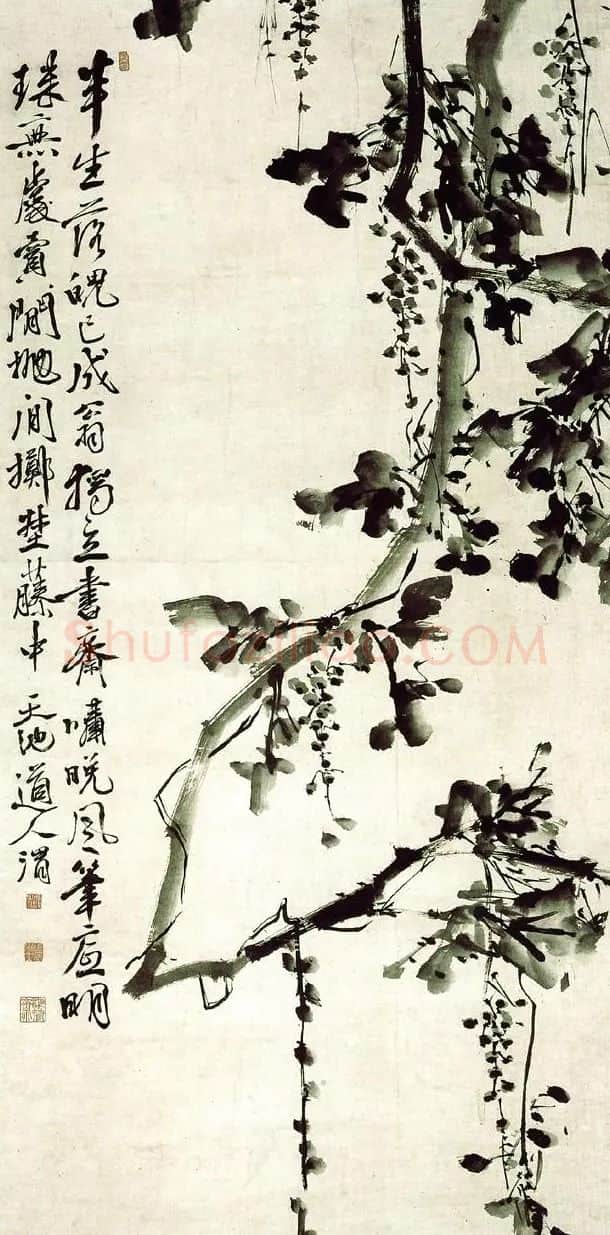 半生落魄已成翁獨立書齋嘯晚風筆底明
珠無處賣閒拋閒擲埜藤中 天池道人渭
Shufaziliao.COM